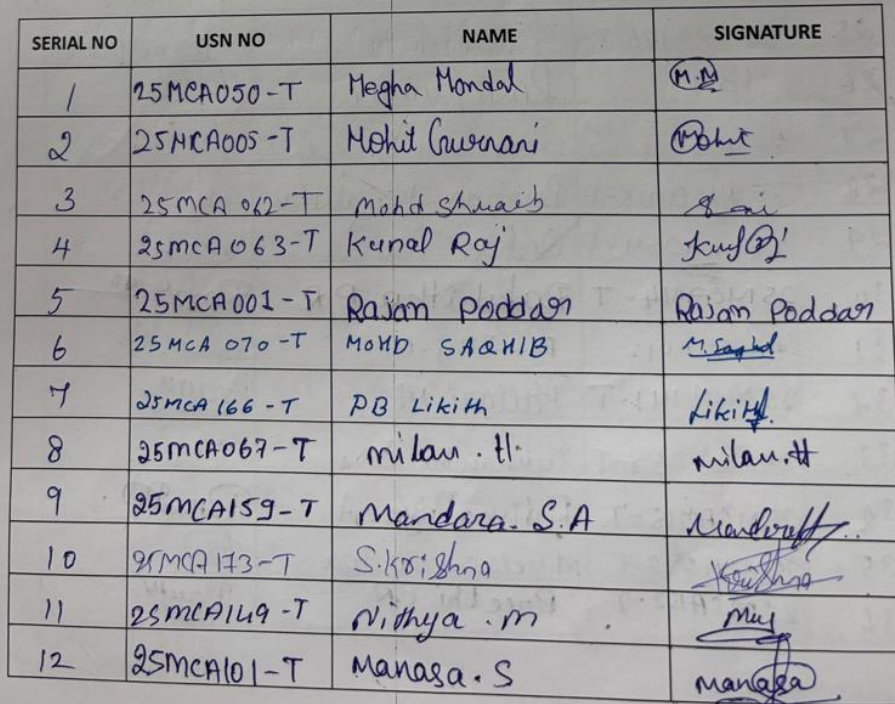 SERIAL NO USN NO NAME SIGNATURE
1 25MCA050-T Megha Mondal M.M
2 25MCA005-T Mohit Gurnani Mohit
3 25MCA062-T Mohd Shuaib
4 25MCA063-T Kunal Raj
5 25MCA001-T Rajan Poddar Rajan Poddar
6 25MCA070-T MOHD SAQHIB
7 25MCA166-T PB Likith Likith.
8 25MCA067-T Milan.H. Milan.H
9 25MCA159-T Mandara.S.A
10 25MCA173-T S.Krishna Krishna
11 25MCA149-T Nithya.M
12 25MCA101-T Manasa.S Manasa